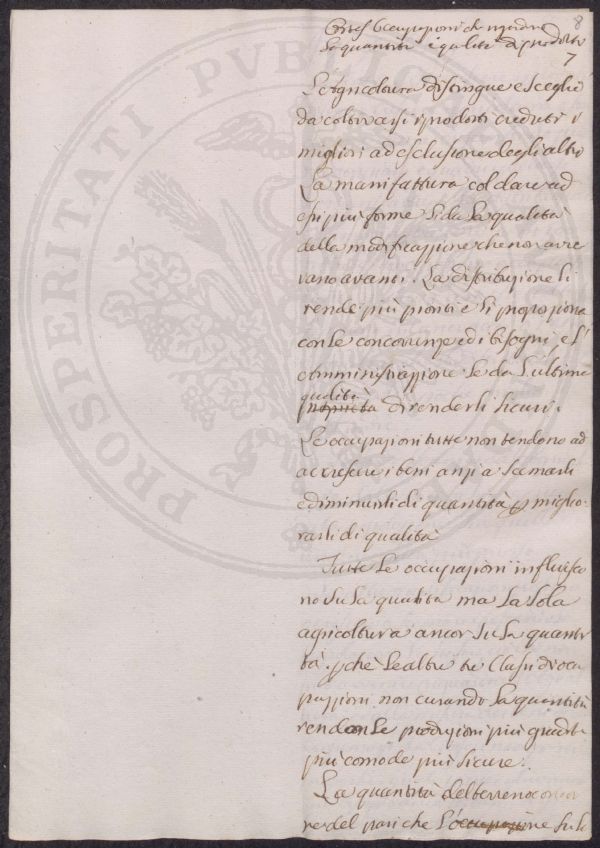 8
Occupazioni che riguardano
la quantità e qualità di prodotti
7
L'agricoltura distingue e sceglie
da coltivarsi i prodotti creduti i
migliori ad esclusione degli altri
La manifattura col dare ad
essi più forme li da la qualità
della modificazione che non ave
vano avanti. La distribuzione li
rende più pronti e li proporziona
con le concorrenze ed i bisogni, e l'
amministrazione le da l'ultima
qualità
di renderli sicuri.
Le occupazioni tutte non tendono ad
accrescere i beni anzi a scemarli
e diminuirli di quantità p miglio-
rarli di qualità
Tutte le occupazioni influisco
no su la qualità ma la sola
agricoltura ancor su la quanti
tà. pchè le altre tre classi d'occu
pazzioni non curando la quantità
rendon le produzioni più gradite
più comode più sicure.
La quantità del terreno concor
re del pari che l'occupazione su la
PROSPERITATI PVBLICAE